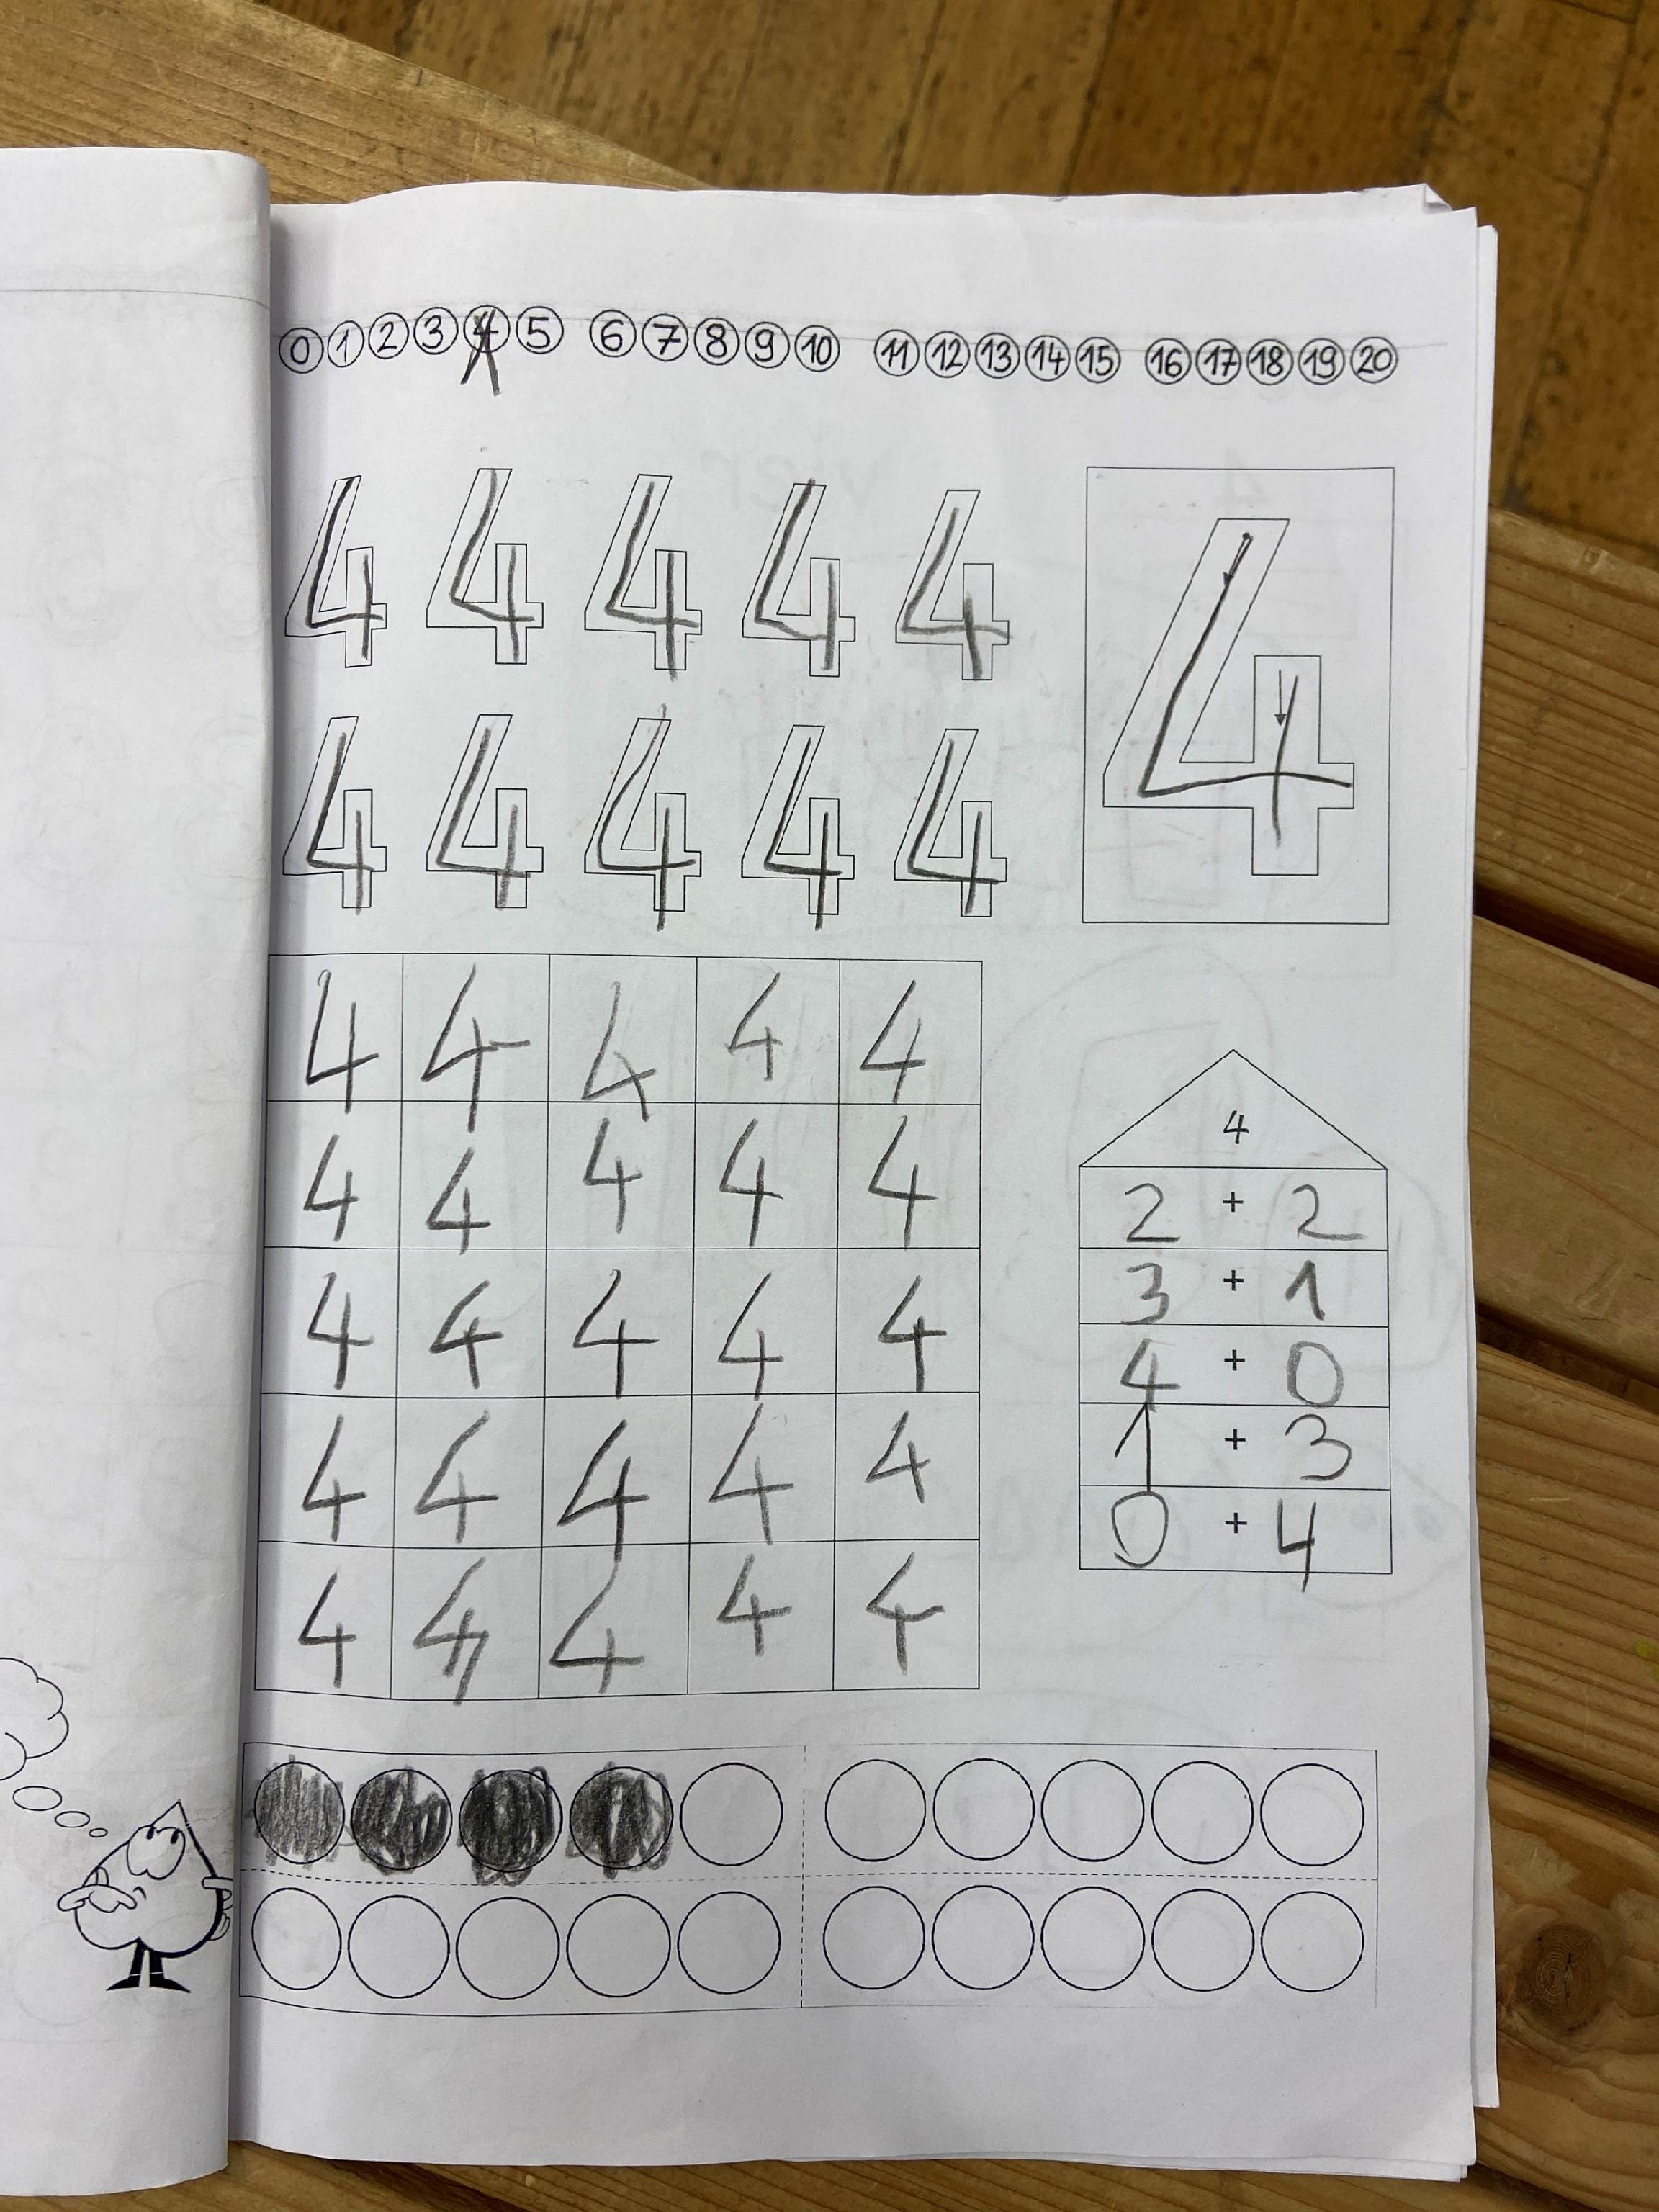 0 1 2 3 4 5 6 7 8 9 10 11 12 13 14 15 16 17 18 19 20
4 4 4 4 4
4 4 4 4 4
4
4 4 4 4 4
4 4 4 4 4
4 4 4 4 4
4 4 4 4 4
4 4 4 4 4
4
2 + 2
3 + 1
4 + 0
1 + 3
0 + 4